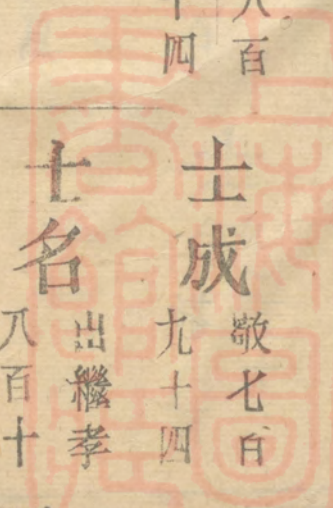 八百
十四
士成
敬七百
九十四
士名
出繼孝
八百十